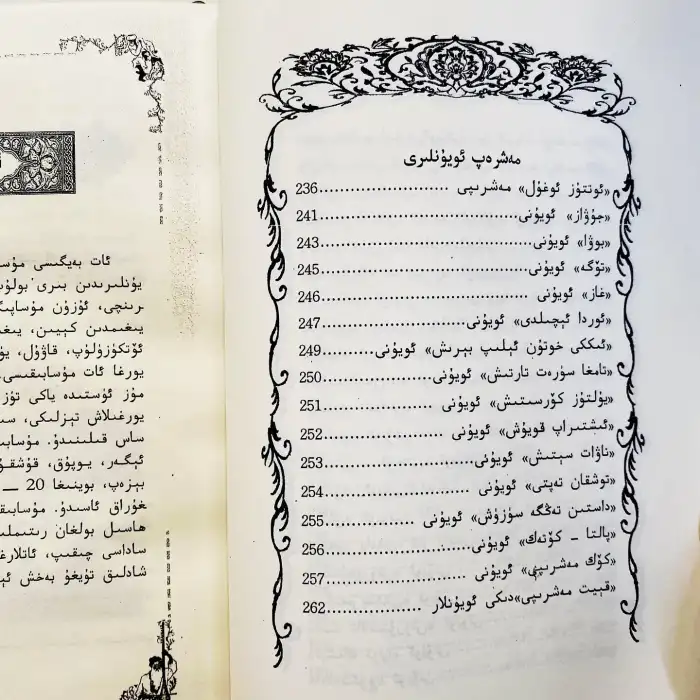 مەشرەپ ئويۇنلىرى
«ئوتتۇز ئوغۇل» مەشرىپى ..................... 236
«جۇۋاز» ئويۇنى................................ 241
«بوۋا» ئويۇنى................................. 243
«تۆگە» ئويۇنى................................. 245
«غاز» ئويۇنى .................................. 246
«ئوردا ئېچىلدى» ئويۇنى....................... 247
«ئىككى خوتۇن ئېلىپ بېرىش» ئويۇنى.......... 249
«تامغا سۈرەت تارتىش» ئويۇنى................ 250
«يۇلتۇز كۆرسىتىش» ئويۇنى .................. 251
«ئىشتىراپ قويۇش» ئويۇنى ................... 252
«ناۋات سېتىش» ئويۇنى....................... 253
«توشقان تەپتى» ئويۇنى ...................... 254
«داستىن تەڭگە سۈزۈش» ئويۇنى .............. 255
«پالتا - كۆتەك» ئويۇنى....................... 256
«كۆك مەشرىپى» ئويۇنى ...................... 257
«قېيت مەشرىپى»دىكى ئويۇنلار ............... 262
ئات بەيگىسى مۇسا
يۇنلىرىدىن بىرى بولۇپ
رىنچى، ئۇزۇن مۇساپىگ
يىغىمدىن كېيىن، يىغ
ئۆتكۈزۈلۈپ، قاۋۇل، يۇ
يورغا ئات مۇسابىقىسى.
مۇز ئۈستىدە ياكى تۈز
يورغىلاش تېزلىكى، سـ
ساس قىلىنىدۇ. مۇساب
ئېگەر، يوپۇق، قۇشقۇ
بېزەپ، بوينىغا 20 —
غۇراق ئاسىدۇ. مۇسابىقـ
ھاسىل بولغان رىتىملى
ساداسى چىقىپ، ئاتلارغ
شادلىق تۇيغۇ بەخش ئې